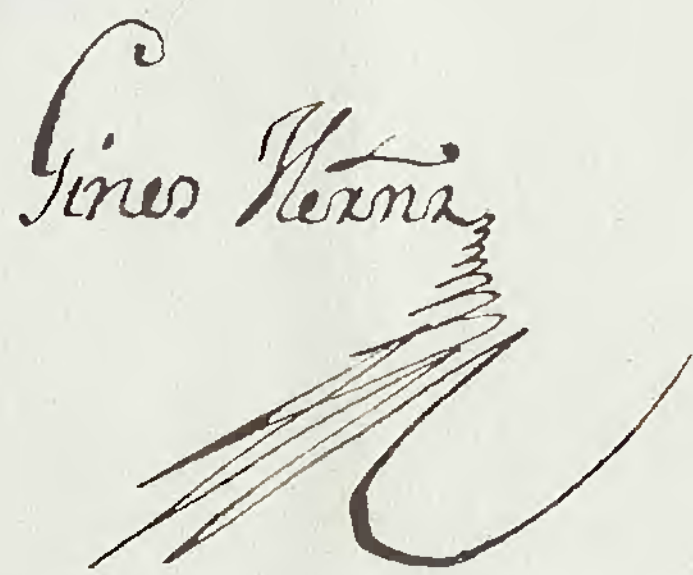 Gines Hernz